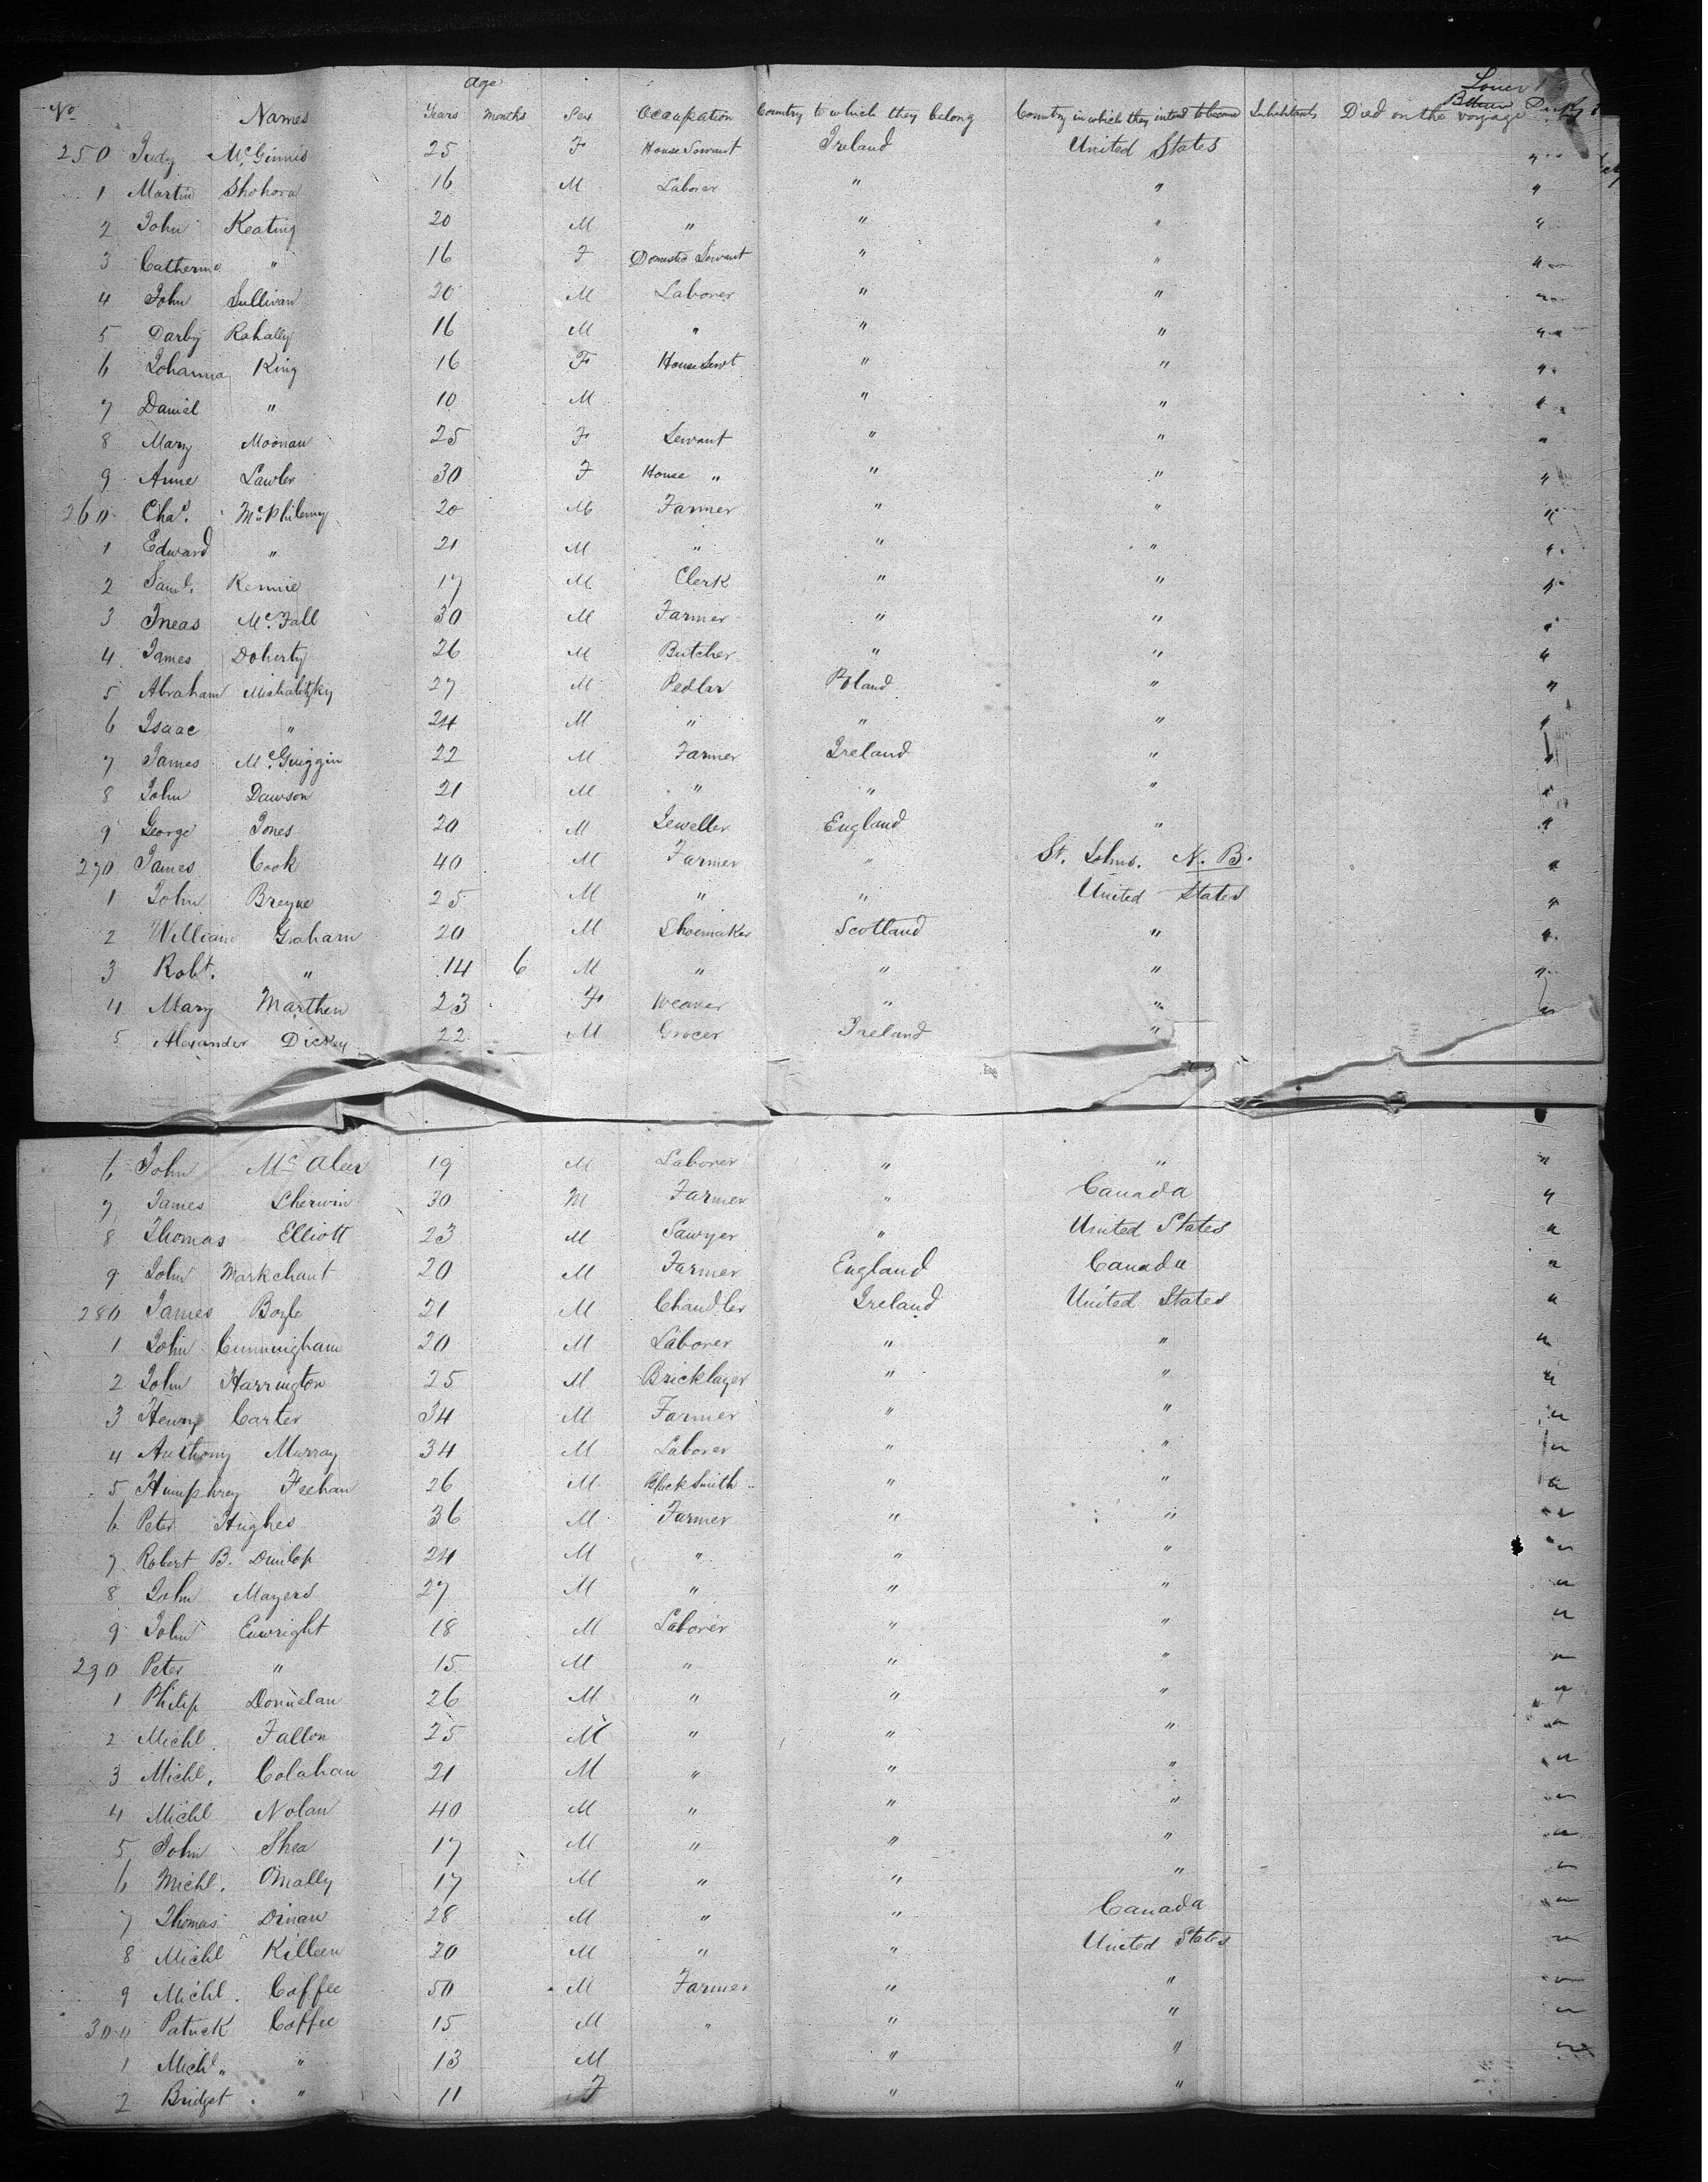 Age
No Names Years Months Sex Occupation Country to which they belong Country in which they intend to become Inhabitants Died on the voyage Lower
250 Judy McGinnis 25 F House Servant Ireland United States "
1 Martin Shohora 16 M Laborer " " "
2 John Keating 20 M " " " "
3 Catherine " 16 F Domestic Servant " " "
4 John Sullivan 20 M Laborer " " "
5 Darby Rahally 16 M " " " "
6 Johanna King 16 F House Servt " " "
7 Daniel " 10 M " " "
8 Mary Moonan 25 F Servant " " "
9 Anne Lawler 30 F House " " " "
260 Chas. McPhilemy 20 M Farmer " " "
1 Edward " 21 M " " " "
2 Saml. Rennie 17 M Clerk " " "
3 Ineas McFall 30 M Farmer " " "
4 James Doherty 26 M Butcher " " "
5 Abraham 27 M Pedlar Poland " "
6 Isaac " 24 M " " " "
7 James McGuiggin 22 M Farmer Ireland " "
8 John Dawson 21 M " " " "
9 George Jones 20 M Jeweller England " "
270 James Cook 40 M Farmer " St. Johns. N. B. "
1 John Breyne 25 M " " United States "
2 William Graham 20 M Shoemaker Scotland " "
3 Robt. " 14 6 M " " " "
4 Mary Marthen 23 F Weaver " " "
5 Alexander Dickey 22 M Grocer Ireland "
6 John McAleer 19 M Laborer " " "
7 James Sherwin 30 M Farmer " Canada "
8 Thomas Elliott 23 M Sawyer " United States "
9 John Markchant 20 M Farmer England Canada "
280 James Boyle 21 M Chandler Ireland United States "
1 John Cunningham 20 M Laborer " " "
2 John Harrington 25 M Bricklayer " " "
3 Henry Carter 34 M Farmer " " "
4 Anthony Murray 34 M Laborer " " "
5 Humphrey Feehan 26 M Blacksmith " " "
6 Peter Hughes 36 M Farmer " " "
7 Robert B. Dunlop 24 M " " " "
8 John Mayers 27 M " " " "
9 John Enwright 18 M Laborer " " "
290 Peter " 15 M " " " "
1 Philip Donnelan 26 M " " " "
2 Michl. Fallon 25 M " " " "
3 Michl. Colahan 21 M " " " "
4 Michl Nolan 40 M " " " "
5 John Shea 17 M " " " "
6 Michl. OMally 17 M " " " "
7 Thomas Dinan 28 M " " Canada "
8 Michl Killeen 20 M " " United States "
9 Michl. Coffee 50 M Farmer " " "
300 Patrick Coffee 15 M " " " "
1 Michl. " 13 M " " "
2 Bridget " 11 F " "